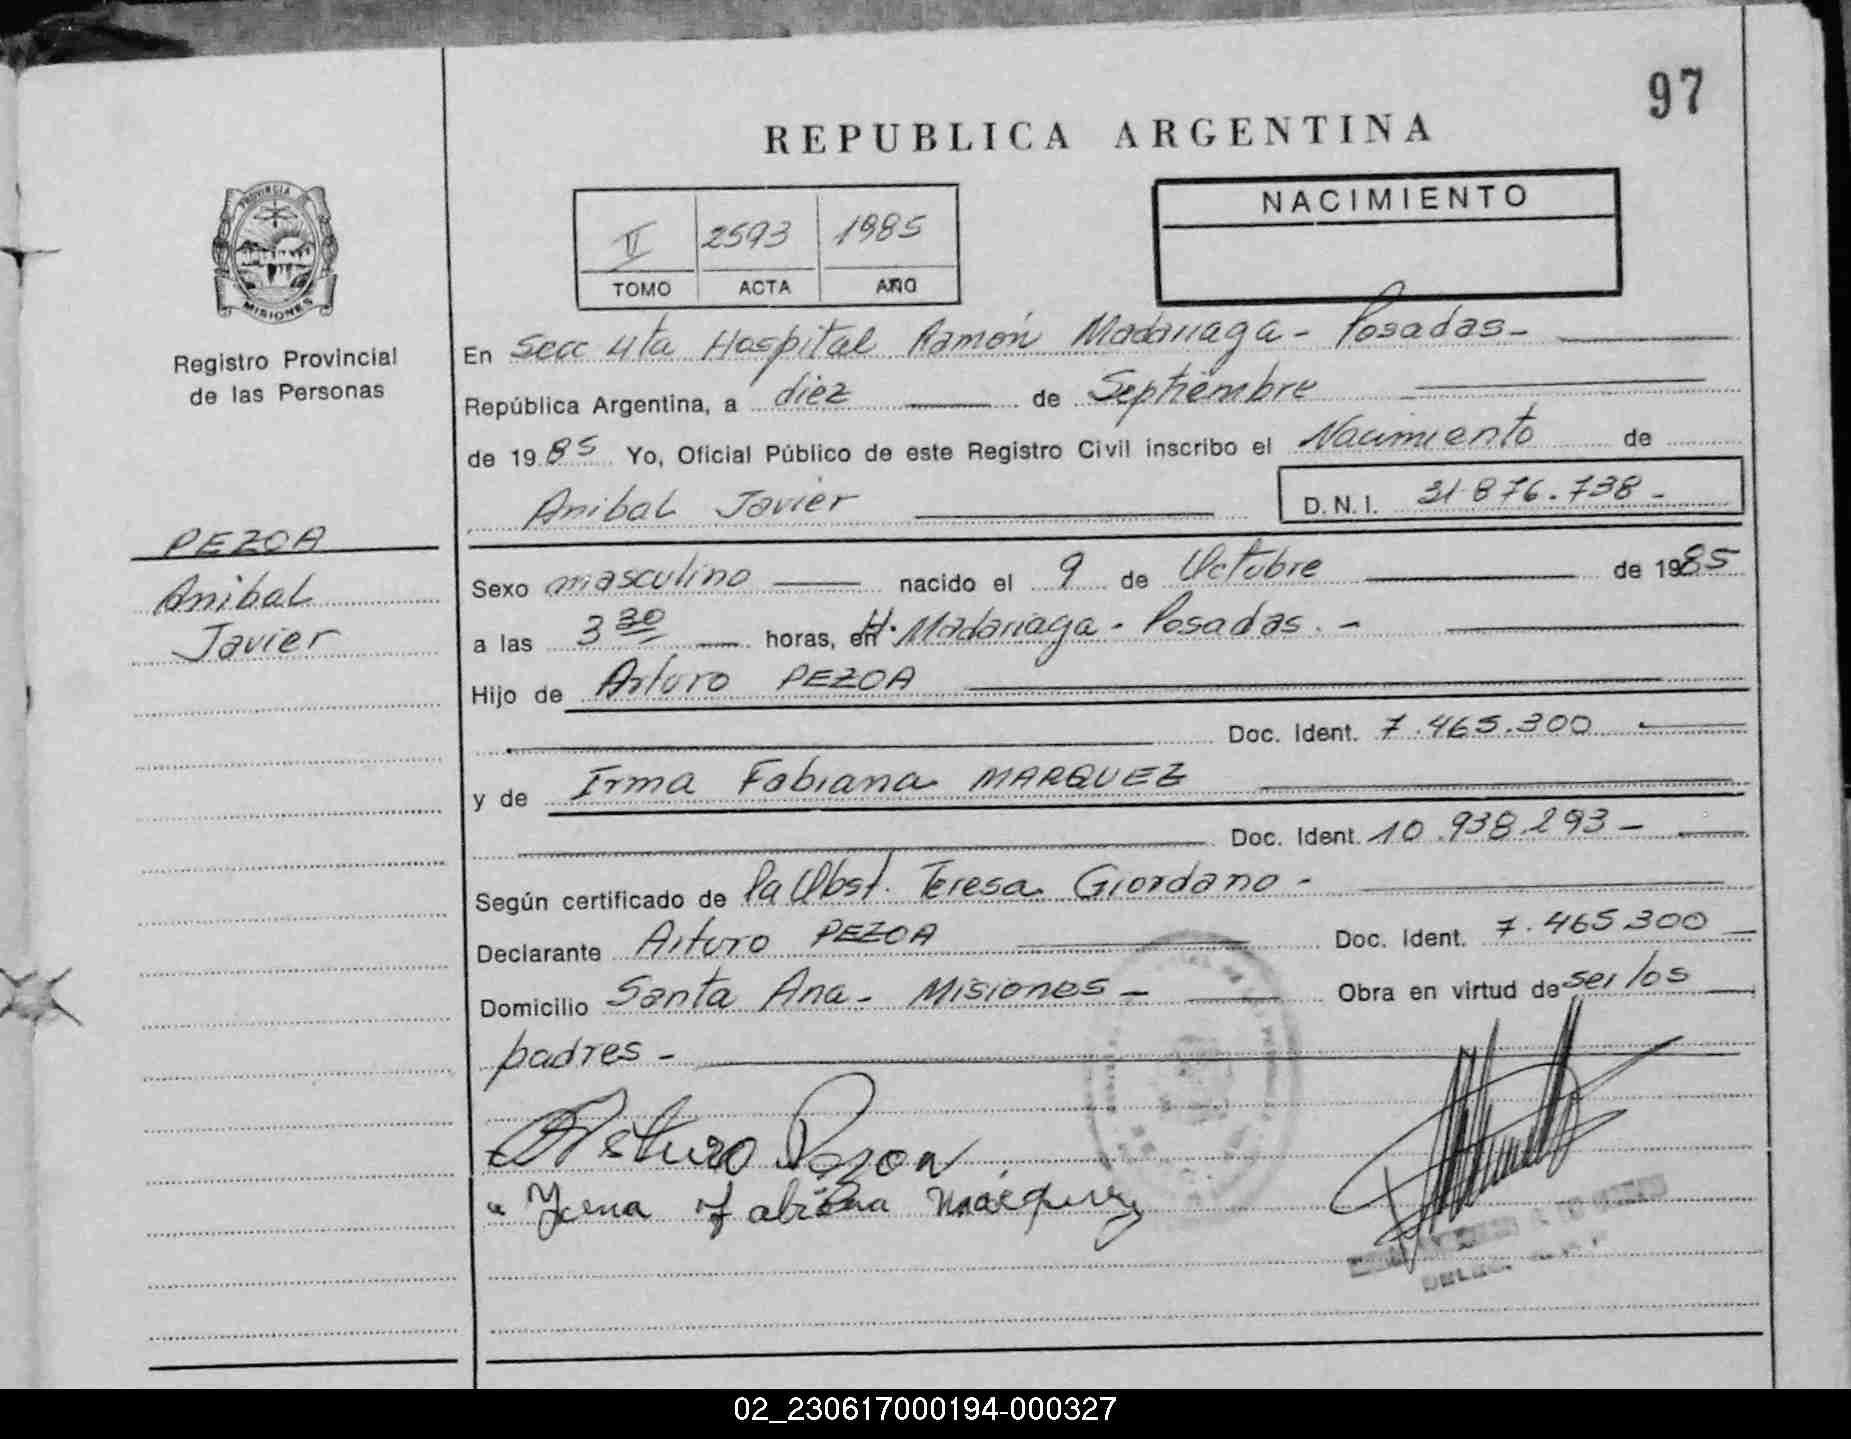 97
REPUBLICA ARGENTINA
PROVINCIA
MISIONES
Registro Provincial
de las Personas
II 2593 1985
TOMO ACTA AÑO
NACIMIENTO
En Secc 4ta Hospital Ramón Madariaga - Posadas -
República Argentina, a diez de Septiembre
de 1985 Yo, Oficial Público de este Registro Civil inscribo el Nacimiento de
Anibal Javier D.N.I. 31.876.738 -
PEZOA
Anibal
Javier
Sexo masculino nacido el 9 de Octubre de 1985
a las 3 30 horas, en H. Madariaga - Posadas. -
Hijo de Arturo PEZOA
Doc. Ident. 7.465.300
y de Irma Fabiana MARQUEZ
Doc. Ident. 10.938.293 -
Según certificado de la Obst. Teresa Giordano -
Declarante Arturo PEZOA Doc. Ident. 7.465.300
Domicilio Santa Ana - Misiones - Obra en virtud de ser los
padres -
Arturo Pezoa
Irma Fabiana Marquez
02_230617000194-000327